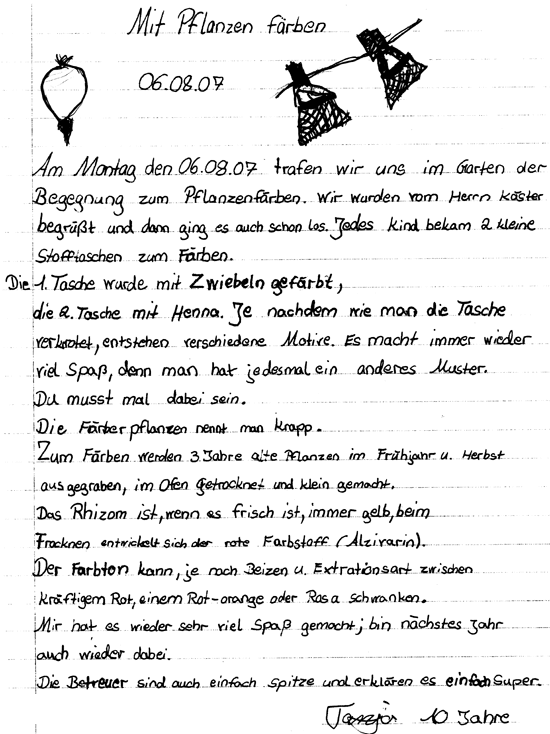 Mit Pflanzen färben
06.08.07
Am Montag den 06.08.07 trafen wir uns im Garten der
Begegnung zum Pflanzenfärben. Wir wurden vom Herrn Köster
begrüßt und dann ging es auch schon los. Jedes Kind bekam 2 kleine
Stofftaschen zum Färben.
Die 1. Tasche wurde mit Zwiebeln gefärbt,
die 2. Tasche mit Henna. Je nachdem wie man die Tasche
verknotet, entstehen verschiedene Motive. Es macht immer wieder
viel Spaß, denn man hat jedesmal ein anderes Muster.
Du musst mal dabei sein.
Die Färberpflanzen nennt man Krapp.
Zum Färben werden 3 Jahre alte Pflanzen im Frühjahr u. Herbst
ausgegraben, im Ofen getrocknet und klein gemacht.
Das Rhizom ist, wenn es frisch ist, immer gelb, beim
Trocknen entwickelt sich der rote Farbstoff (Alzivarin).
Der Farbton kann, je nach Beizen u. Extrationsart zwischen
kräftigem Rot, einem Rot-orange oder Rosa schwanken.
Mir hat es wieder sehr viel Spaß gemacht, bin nächstes Jahr
auch wieder dabei.
Die Betreuer sind auch einfach spitze und erklären es einfach Super.
10 Jahre